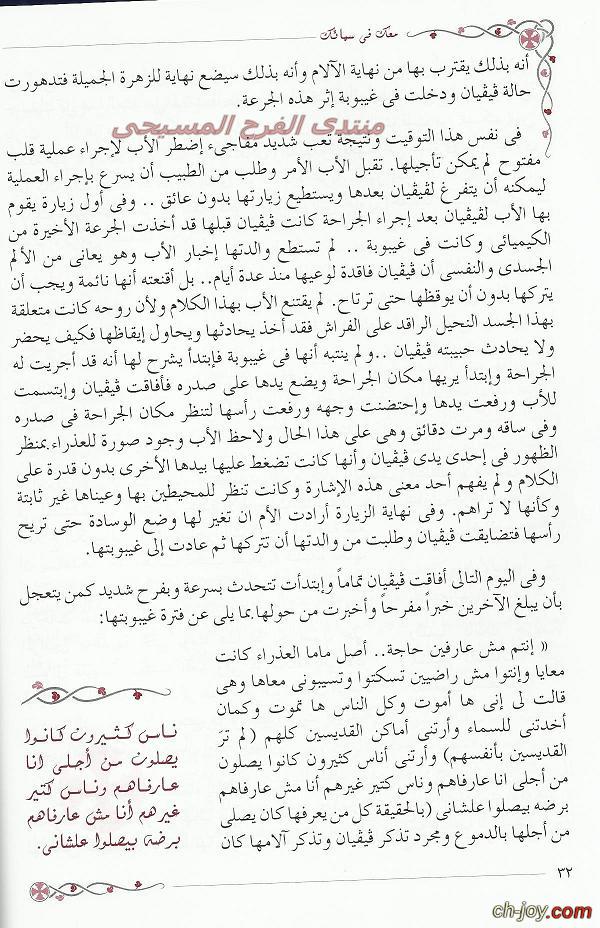 معك فى سمائك
أنه بذلك يقترب بها من نهاية الآلام وأنه بذلك سيضع نهاية للزهرة الجميلة فتدهورت
حالة ڤيڤيان ودخلت فى غيبوبة إثر هذه الجرعة.
منتدى الفرح المسيحى
فى نفس هذا التوقيت ونتيجة تعب شديد مفاجىء إضطر الأب لإجراء عملية قلب
مفتوح لم يمكن تأجيلها. تقبل الأب الأمر وطلب من الطبيب أن يسرع بإجراء العملية
ليمكنه أن يتفرغ لڤيڤيان بعدها ويستطيع زيارتها بدون عائق .. وفى أول زيارة يقوم
بها الأب لڤيڤيان بعد إجراء الجراحة كانت ڤيڤيان قبلها قد أخذت الجرعة الأخيرة من
الكيميائى وكانت فى غيبوبة .. لم تستطع والدتها إخبار الأب وهو يعانى من الألم
الجسدى والنفسى أن ڤيڤيان فاقدة لوعيها منذ عدة أيام.. بل أقنعته أنها نائمة ويجب أن
يتركها بدون أن يوقظها حتى ترتاح. لم يقتنع الأب بهذا الكلام ولأن روحه كانت متعلقة
بهذا الجسد النحيل الراقد على الفراش فقد أخذ يحادثها ويحاول إيقاظها فكيف يحضر
ولا يحادث حبيبته ڤيڤيان ..ولم ينتبه أنها فى غيبوبة فإبتدأ يشرح لها أنه قد أجريت له
الجراحة وإبتدأ يريها مكان الجراحة ويضع يدها على صدره فأفاقت ڤيڤيان وإبتسمت
للأب ورفعت يدها وإحتضنت وجهه ورفعت رأسها لتنظر مكان الجراحة فى صدره
وفى ساقه ومرت دقائق وهى على هذا الحال ولاحظ الأب وجود صورة للعذراء بمنظر
الظهور فى إحدى يدى ڤيڤيان وأنها كانت تضغط عليها بيدها الأخرى بدون قدرة على
الكلام ولم يفهم أحد معنى هذه الإشارة وكانت تنظر للمحيطين بها وعيناها غير ثابتة
وكأنها لا تراهم. وفى نهاية الزيارة أرادت الأم ان تغير لها وضع الوسادة حتى تريح
رأسها فتضايقت ڤيڤيان وطلبت من والدتها أن تتركها ثم عادت إلى غيبوبتها.
وفى اليوم التالى أفاقت ڤيڤيان تماماً وإبتدأت تتحدث بسرعة وبفرح شديد كمن يتعجل
بأن يبلغ الآخرين خبراً مفرحاً وأخبرت من حولها بما يلى عن فترة غيبوبتها:
« إنتم مش عارفين حاجة.. أصل ماما العذراء كانت
معايا وإنتوا مش راضيين تسكتوا وتسيبونى معاها وهى
قالت لى إنى ها أموت وكل الناس ها تموت وكمان
أخدتنى للسماء وأرتنى أماكن القديسين كلهم (لم ترَ
القديسين بأنفسهم) وأرتنى أناس كثيرون كانوا يصلون
من أجلى انا عارفاهم وناس كتير غيرهم أنا مش عارفاهم
برضه بيصلوا علشانى (بالحقيقة كل من يعرفها كان يصلى
من أجلها بالدموع ومجرد تذكر ڤيڤيان وتذكر آلامها كان
ناس كثيرون كانوا
يصلون من أجلى انا
عارفاهم وناس كتير
غيرهم أنا مش عارفاهم
برضه بيصلوا علشانى.
٣٢
ch-joy.com